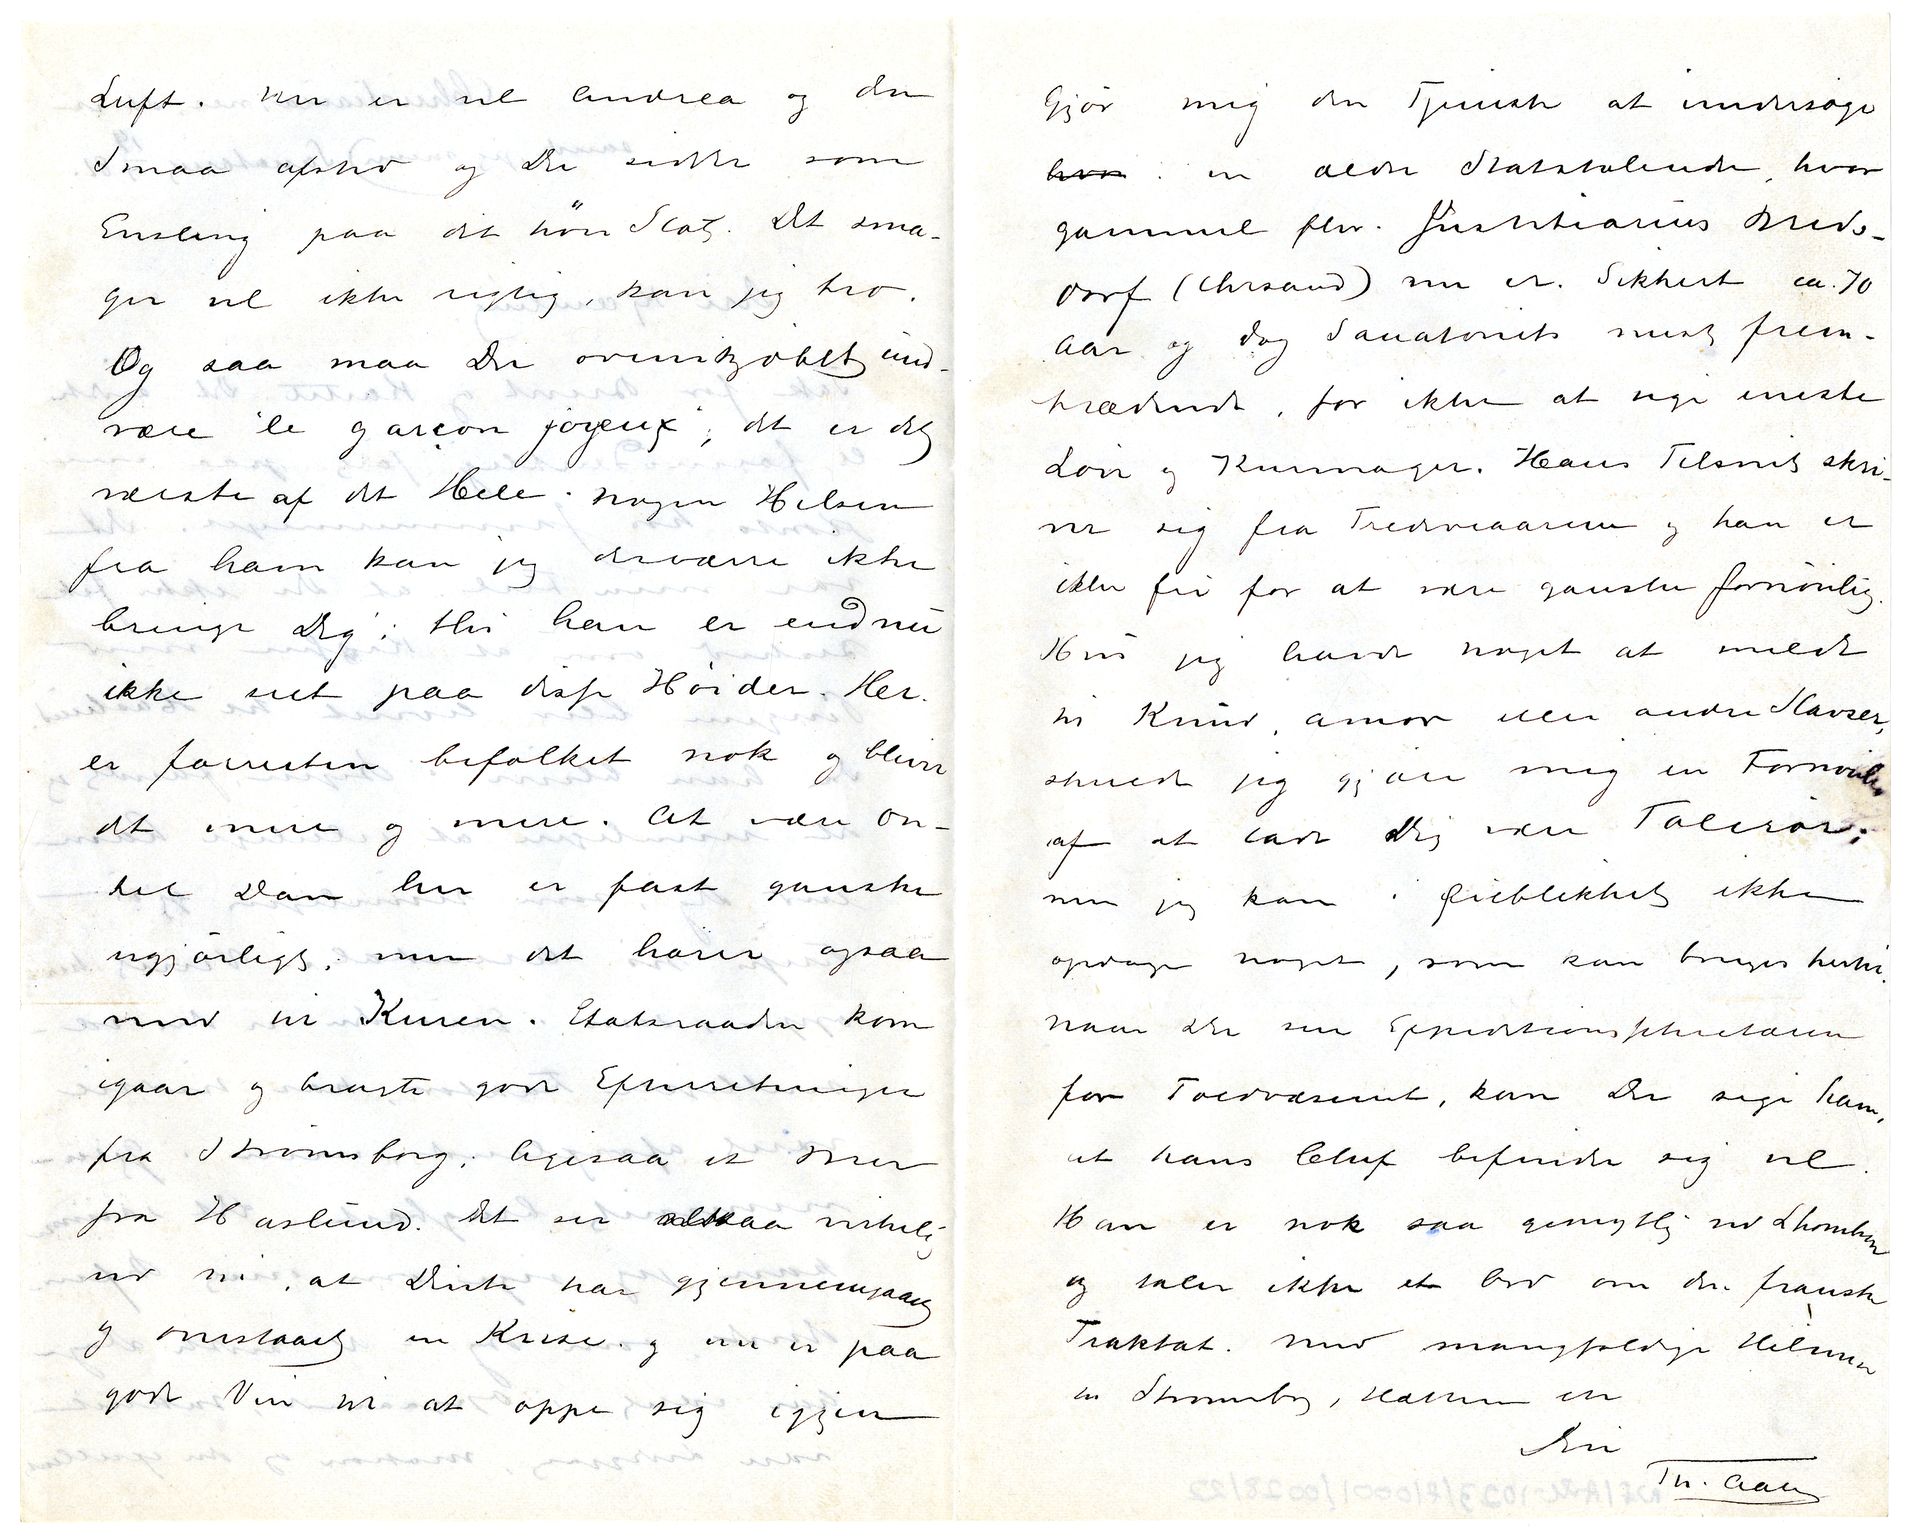 Luft. Nu er vel Andrea og de
Smaa afsted og Du sidder som
Ensling paa det høie Slot. Det sma-
ger vel ikke rigtig, kan jeg tro.
Og saa maa Du ovenikjøbet und-
være "le garçon joyeux"; det er det
værste af det Hele. Nogen Hilsen
fra ham kan jeg desværre ikke
bringe Dig; thi han er endnu
ikke seet paa disse Høider. Her
er forresten befolket nok og bliver
det mere og mere. At være On-
kel Dan her er fast ganske
ugjørligt, men det hører ogsaa
med til Kuren. Etatsraaden kom
igaar og bragte gode Efterretninger
fra Strømsborg, ligesaa et Brev
fra Haslund. Det ser altsaa virkelig
ud til, at Dirik har gjennemgaaet
og overstaaet en Krise og nu er paa
gode Vei til at oppe sig igjen
Gjør mig den Tjeneste at undersøge
i en ældre Statskalender, hvor
gammel fhv. Justitiarius Breds-
dorf (Chrsand) nu er. Sikkert ca. 70
Aar og dog Sanatoriets mest frem-
trædende, for ikke at sige eneste
Løve og Kurmager. Hans Tilsnit skri-
ver sig fra Tredveaarene og han er
ikke fri for at være ganske fornøielig.
Hvis jeg havde noget at melde
til Knud, Amor eller andre Slavser,
skulde jeg gjøre mig en Fornøielse
af at lade Dig være Talerør;
men jeg kan i Øieblikket ikke
opdage noget, som kan bruges hertil.
Naar Du ser Expeditionssekretæren
for Toldvæsenet, kan Du sige ham,
at hans Chef befinder sig vel.
Han er nok saa gemytlig ved Lhombren
og taler ikke et Ord om den franske
Traktat. Med mangfoldige Hilsener
til Strømsborg, Hatten etc
Din
Th. Aall